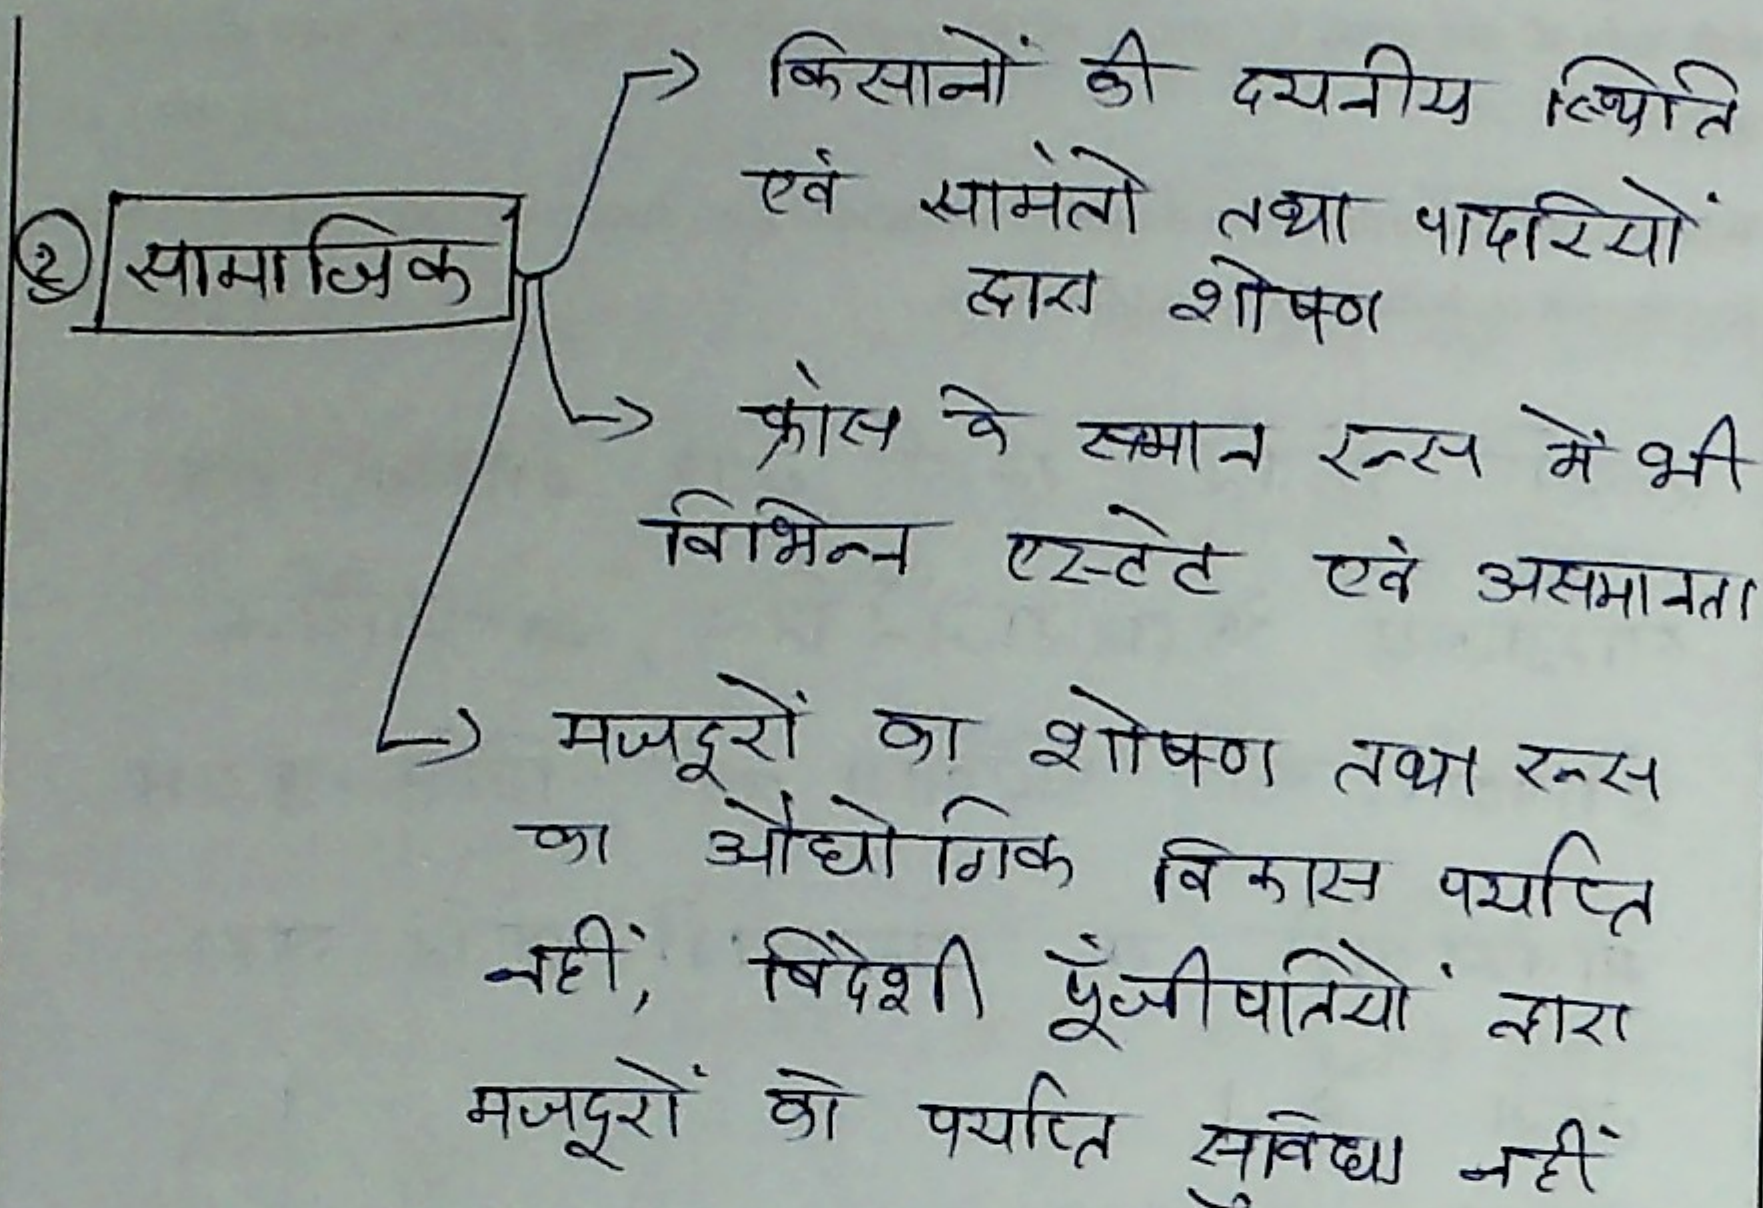 किसानों की दयनीय स्थिति
एवं सामंतो तथा पादरियों
द्वारा शोषण
② सामाजिक
फ्रांस के समान रूस में भी
विभिन्न एस्टेट एवं असमानता
मजदूरों का शोषण तथा रूस
का औद्योगिक विकास पर्याप्त
नहीं, विदेशी पूँजीपतियों द्वारा
मजदूरों को पर्याप्त सुविधा नहीं